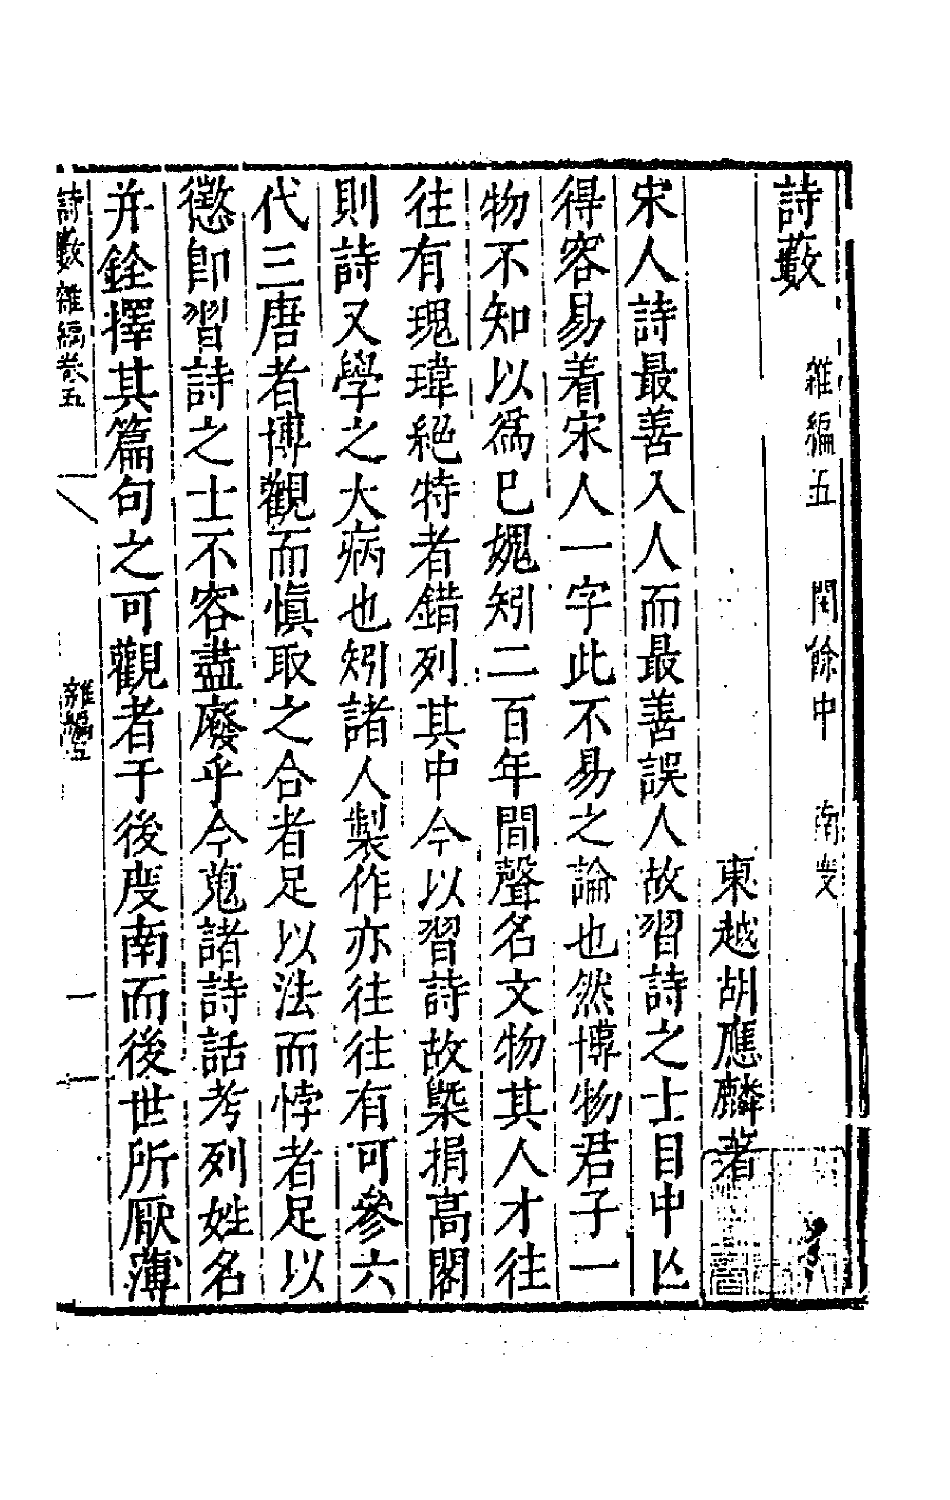 詩藪　雜編五　閏餘中　南度
東越胡應麟著
宋人詩最善入人而最善誤人故習詩之士目中亾
得容易着宋人一字此不易之論也然博物君子一
物不知以爲已媿矧二百年間聲名文物其人才往
往有瑰瑋絕特者錯列其中今以習詩故槩捐高閣
則詩又學之大病也矧諸人製作亦往往有可參六
代三唐者博觀而慎取之合者足以法而悖者足以
懲卽習詩之士不容盡廢乎今蒐諸詩話考列姓名
并銓擇其篇句之可觀者于後庋南而後世所厭薄
詩藪雜編卷五　雜編五　一